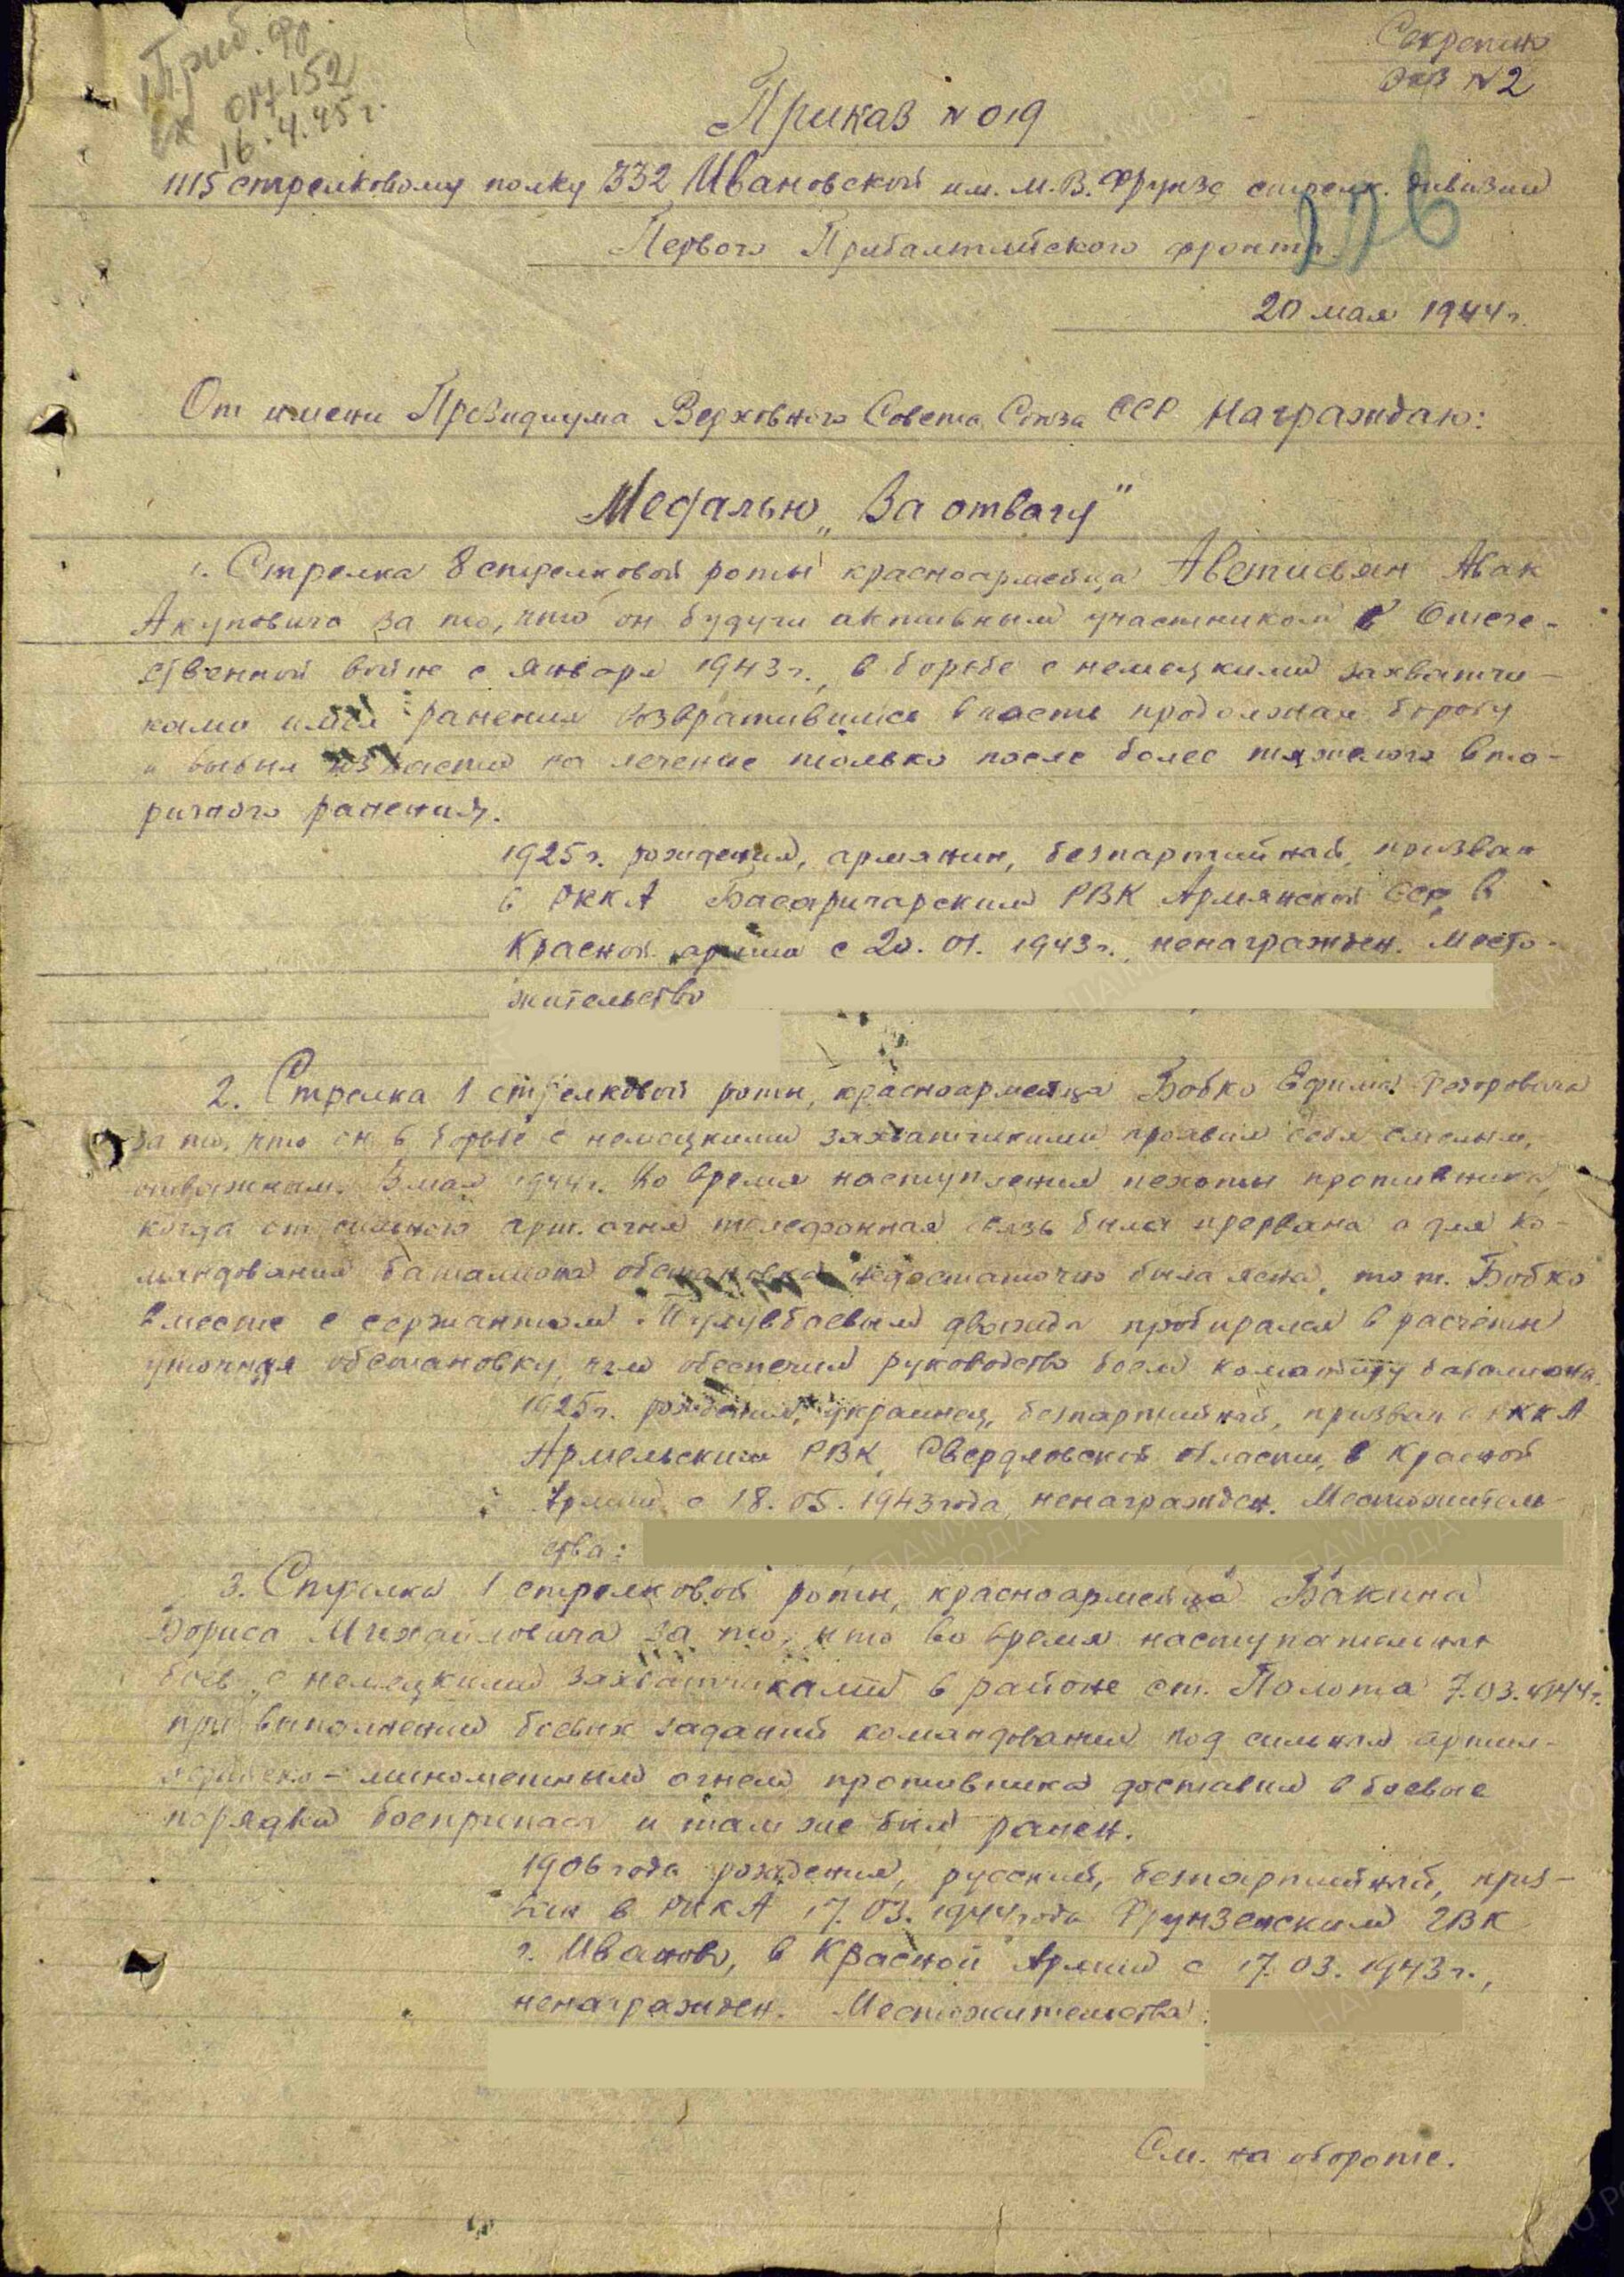 Приб. фр.
Вх 017152
16.4.45 г.
Секретно
Экз № 2
Приказ № 019
1115 стрелковому полку 332 Ивановской им. М.В. Фрунзе стрелк. дивизии
Первого Прибалтийского фронта.
20 мая 1944 г.
От имени Президиума Верховного Совета Союза ССР награждаю:
Медалью „За отвагу"
1. Стрелка 8 стрелковой роты красноармейца Аветисян Авак
Акуповича за то, что он будучи активным участником в Отече-
ственной войне с января 1943 г., в борьбе с немецкими захватчи-
ками имея ранения возвратившися в часть продолжая борьбу
и выбыл из части на лечение только после более тяжелого вто-
ричного ранения.
1925 г. рождения, армянин, безпартийный, призван
в РККА Басаргичарским РВК Армянской ССР, в
Красной армии с 20.01.1943 г., ненагражден. Место-
жительство
2. Стрелка 1 стрелковой роты, красноармейца Бобко Ефима Федоровича
за то, что он в борьбе с немецкими захватчиками проявил себя смелым,
отважным. 3 мая 1944 г. во время наступления пехоты противника,
когда от сильного арт. огня телефонная связь была прервана а для ко-
мандования батальона обстановка недостаточно была ясна, то т. Бобко
вместе с сержантом дважды пробирался в расчеты
уточняя обстановку, чем обеспечил руководство боем командиру батальона.
1925 г. рождения, украинец, безпартийный, призван в РККА
РВК, Свердловской области, в Красной
Армии с 18.05.1943 года, ненагражден. Местожитель-
ства:
3. Стрелка 1 стрелковой роты, красноармейца Бакина
Бориса Михайловича за то, что во время наступательных
боев с немецкими захватчиками в районе ст. Полота 7.03.1944 г.
при выполнении боевых заданий командования под сильным артил-
лерийско-минометным огнем противника доставил в боевые
порядки боеприпасы и там же был ранен.
1906 года рождения, русский, безпартийный, приз-
ван в РККА 17.03.1944 года Фрунзенским ГВК
г. Иванов, в Красной Армии с 17.03.1943 г.,
ненагражден. Местожительства:
См. на обороте.